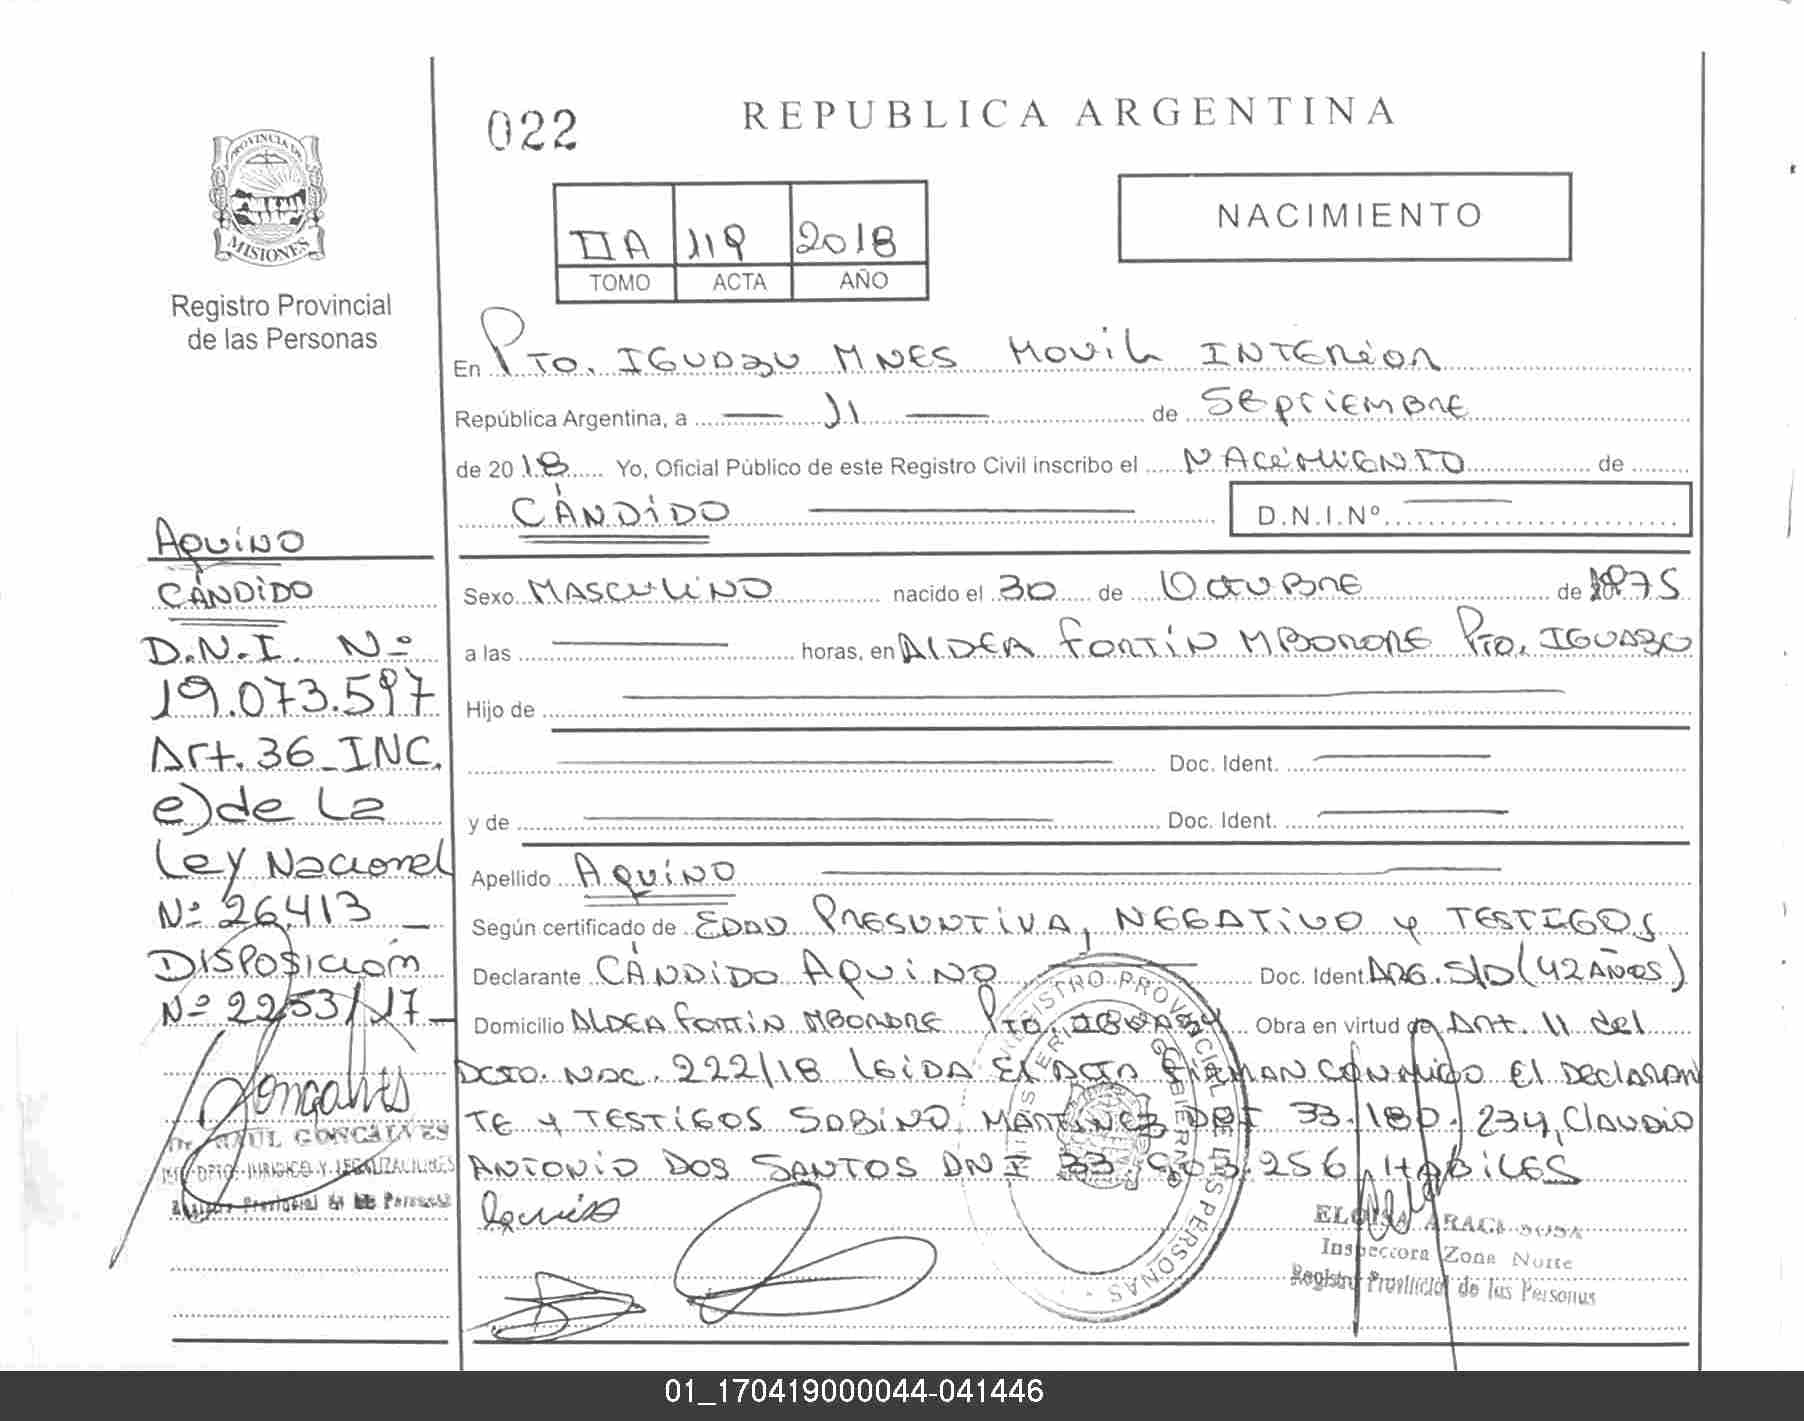 022
REPUBLICA ARGENTINA
PROVINCIA DE
MISIONES
Registro Provincial
de las Personas
II A 119 2018
TOMO ACTA AÑO
NACIMIENTO
En Pto. IGUAZU MNES MOVIL INTERIOR
República Argentina, a 11 de SEPTIEMBRE
de 2018 Yo, Oficial Público de este Registro Civil inscribo el NACIMIENTO de
CÁNDIDO D.N.I.Nº
AQUINO
CÁNDIDO
D.N.I. Nº
19.073.597
Art. 36 INC.
e) de La
Ley Nacional
Nº 26.413
DISPOSICIÓN
Nº 2253/17
Gonçalves
Dr. RAUL GONCALVES
DPTO. JURIDICO Y LEGALIZACIONES
Registro Provincial de las Personas
Sexo MASCULINO nacido el 30 de OCTUBRE de 1975
a las horas, en ALDEA FORTÍN MBORORE Pto. IGUAZU
Hijo de
Doc. Ident.
y de Doc. Ident.
Apellido AQUINO
Según certificado de EDAD PRESUNTIVA, NEGATIVO y TESTIGOS
Declarante CÁNDIDO AQUINO Doc. Ident. ARG. S/D (42 AÑOS)
Domicilio ALDEA FORTIN MBORORE Pto. IGUAZU Obra en virtud de Art. 11 del
DCTO. NAC. 222/18 LEIDA EL ACTA FIRMAN CONMIGO El DECLARAN
TE y TESTIGOS SABINO MARTINEZ DNI 33.180.234, CLAUDIO
ANTONIO DOS SANTOS DNI 33.903.256, HABILES
REGISTRO PROVINCIAL DE LAS PERSONAS
ELOISA ARACI SOSA
Inspectora Zona Norte
Registro Provincial de las Personas
01_170419000044-041446